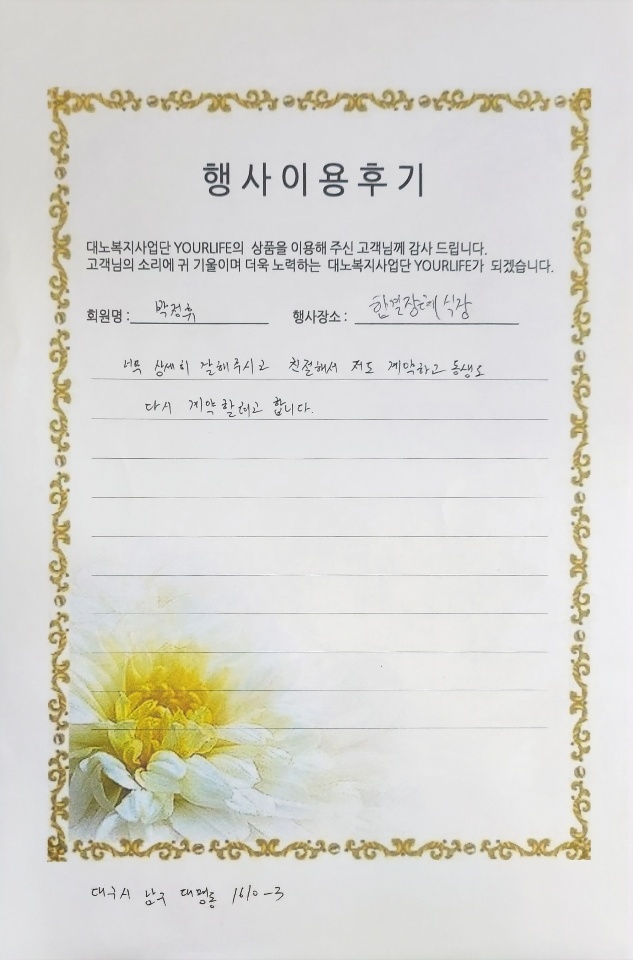 행사이용후기
대노복지사업단 YOURLIFE의 상품을 이용해 주신 고객님께 감사 드립니다.
고객님의 소리에 귀 기울이며 더욱 노력하는 대노복지사업단 YOURLIFE가 되겠습니다.
회원명 : 박정휘 행사장소 : 한결장례식장
너무 상세히 잘해주시고 친절해서 저도 계약하고 동생도
다시 계약할려고 합니다.
대구시 남구 대명동 1610-3